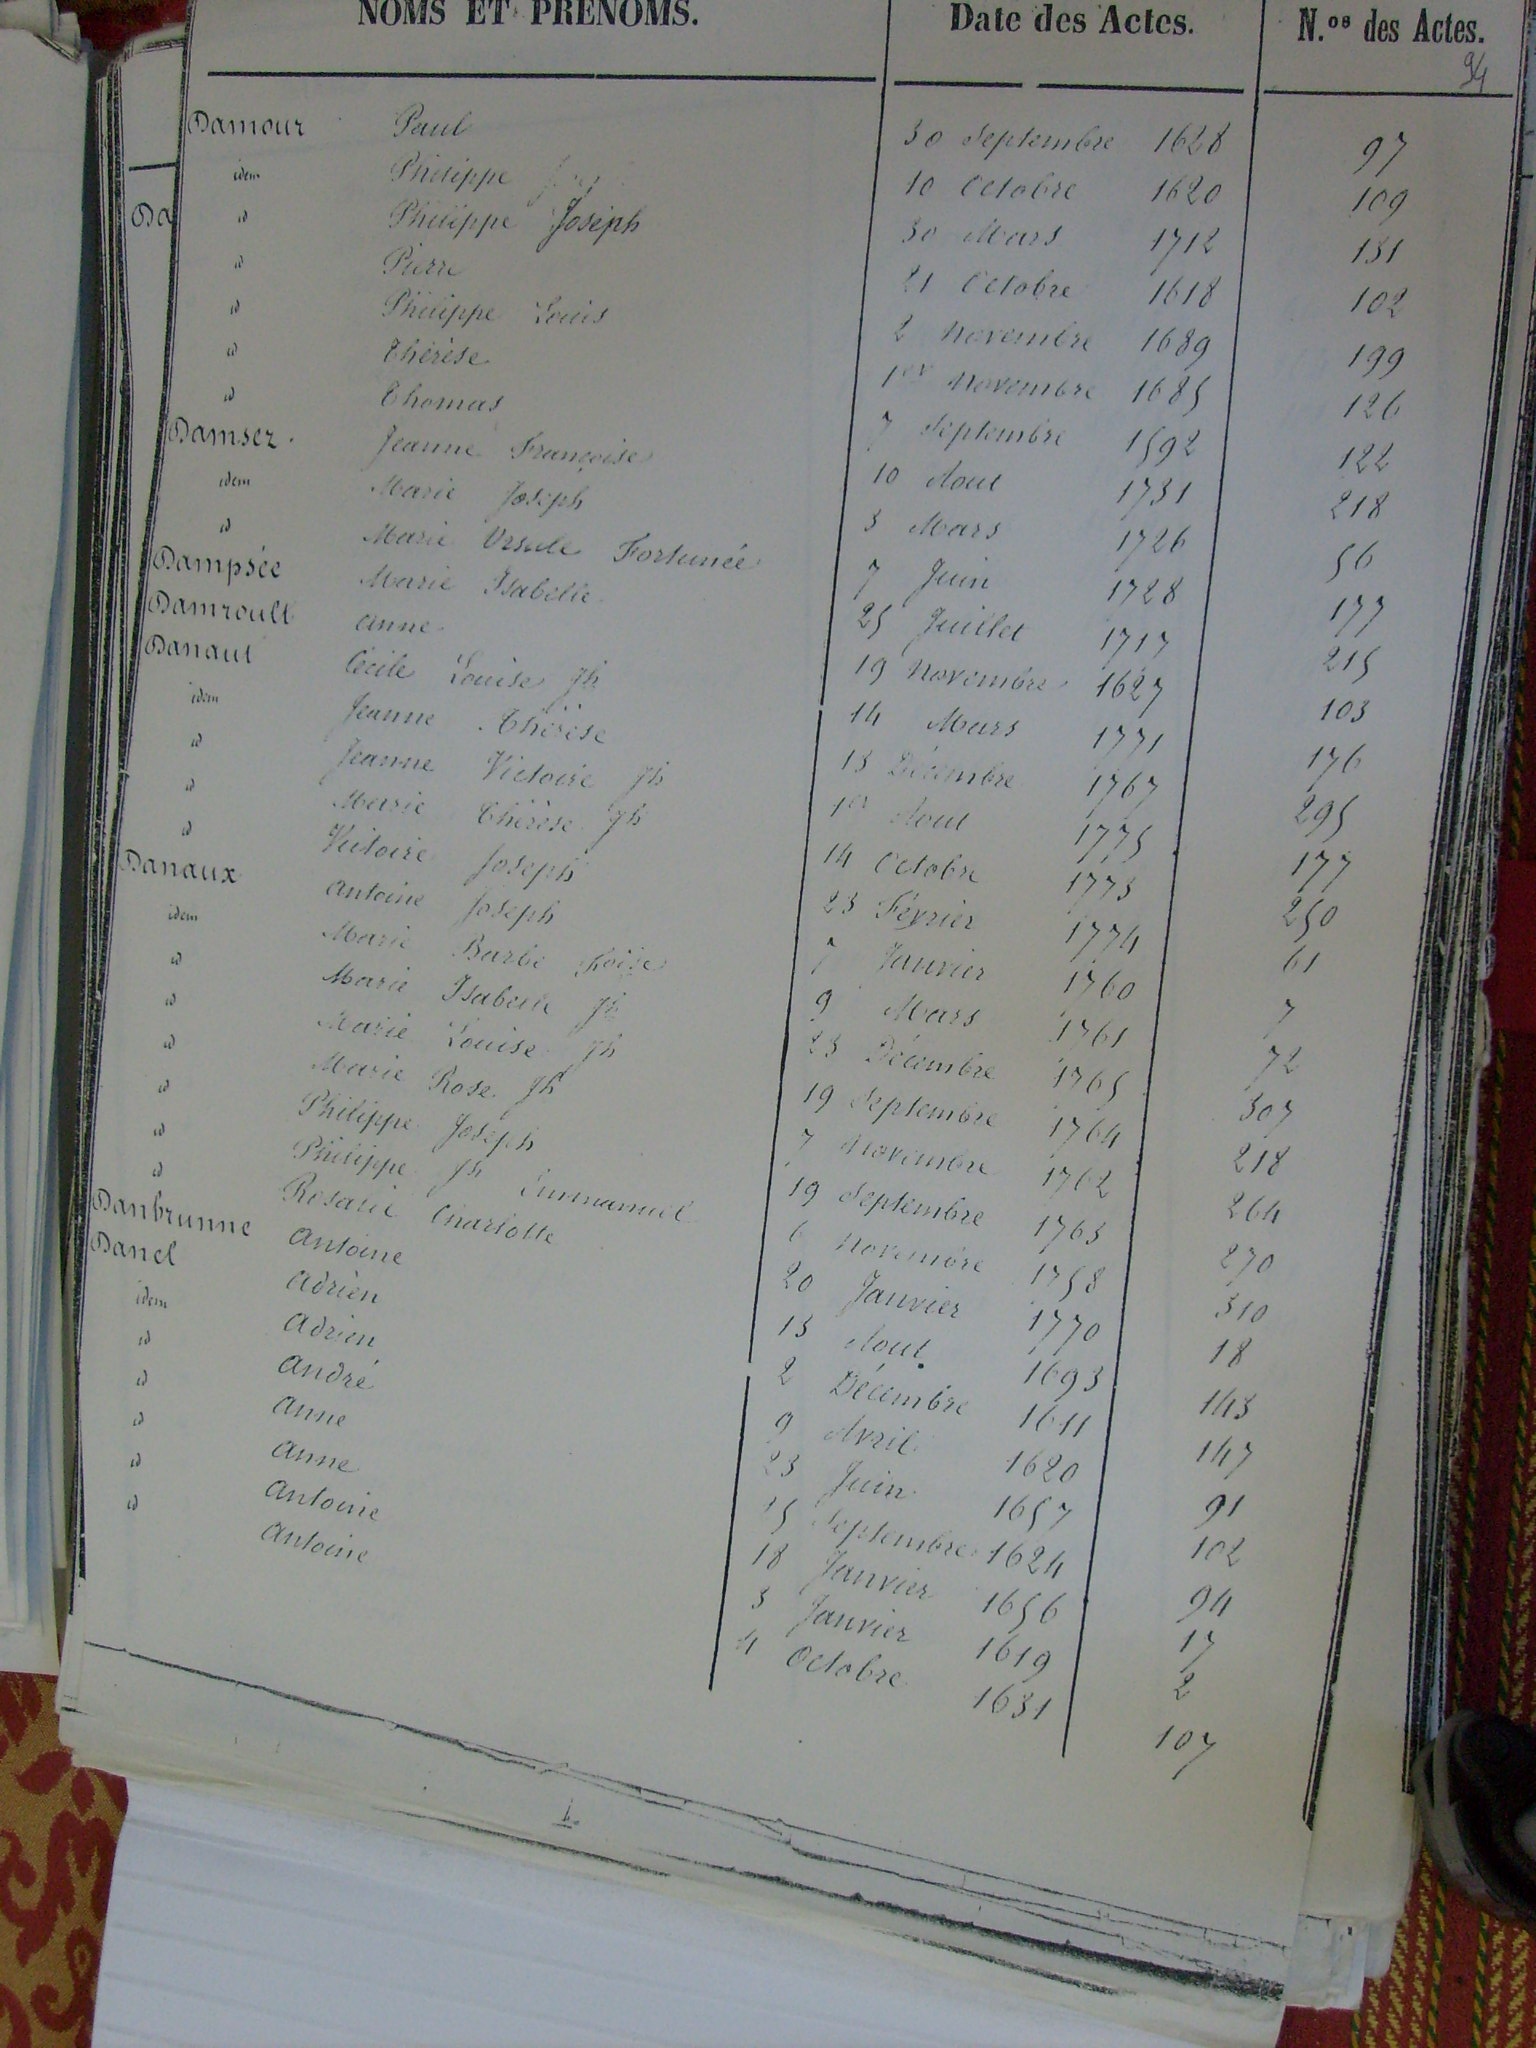 NOMS ET PRÉNOMS. Date des Actes. N.os des Actes.
94
Damour Paul 30 Septembre 1628 97
idem Philippe 10 Octobre 1620 109
id Philippe Joseph 30 Mars 1712 131
id Pierre 21 Octobre 1618 102
id Philippe Louis 2 Novembre 1689 199
id Thérèse 1er Novembre 1685 126
id Thomas 7 Septembre 1592 122
Damsez Jeanne Françoise 10 Aout 1731 218
idem Marie Joseph 3 Mars 1726 56
id Marie Ursule Fortunée 7 Juin 1728 177
Dampsée Marie Isabelle 25 Juillet 1717 215
Damroult Anne 19 Novembre 1627 103
Danaut Cécile Louise Jh 14 Mars 1771 176
idem Jeanne Thérèse 13 Décembre 1767 295
id Jeanne Victoire Jh 1er Aout 1775 177
id Marie Thérèse Jh 14 Octobre 1773 250
id Victoire Joseph 23 Février 1774 61
Danaux Antoine Joseph 7 Janvier 1760 7
idem Marie Barbe 9 Mars 1761 72
id Marie Isabelle Jh 23 Décembre 1765 307
id Marie Louise Jh 19 Septembre 1764 218
id Marie Rose Jh 7 Novembre 1762 264
id Philippe Joseph 19 Septembre 1763 270
id Philippe Jh Emmanuel 6 Novembre 1758 310
id Rosalie Charlotte 20 Janvier 1770 18
Danbrunne Antoine 13 Aout 1693 143
Danel Adrien 2 Décembre 1611 147
idem Adrien 9 Avril 1620 91
id André 23 Juin 1657 102
id Anne 15 Septembre 1624 94
id Anne 18 Janvier 1656 17
id Antoine 3 Janvier 1619 2
id Antoine 4 Octobre 1631 107
Da